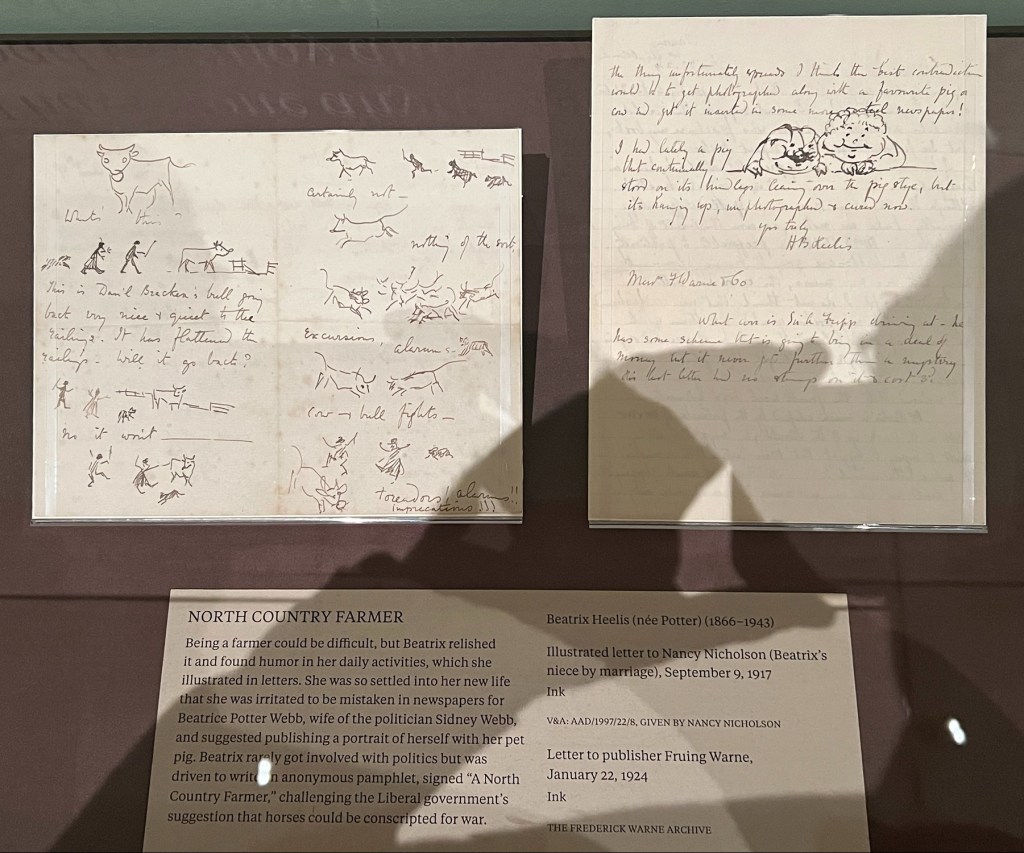 What's this?
This is Dan'l Bracken's bull going
back very nice & quiet to the
railings. It has flattened the
railings. Will it go back?
no it won't
Certainly not —
nothing of the sort
Excursions,
alarums —
Cow & bull fights —
toreadors! alarums!!
imprecations!!!
the thing unfortunately spreads I think the best contradiction
would be to get photographed along with a favourite pig or
cow & get it inserted in some more newspaper!
I had lately a pig
that continually
stood on its hind legs leaning over the pig stye, but
it's hanging up, unphotographed & cured now.
yrs truly
HB Heelis
Messrs F Warne & Co
What is Sir H. driving at — he
has some scheme that is going to bring in a deal of
money but it never gets further than a mystery
his last letter had no stamp on it & cost
NORTH COUNTRY FARMER
Being a farmer could be difficult, but Beatrix relished
it and found humor in her daily activities, which she
illustrated in letters. She was so settled into her new life
that she was irritated to be mistaken in newspapers for
Beatrice Potter Webb, wife of the politician Sidney Webb,
and suggested publishing a portrait of herself with her pet
pig. Beatrix rarely got involved with politics but was
driven to write an anonymous pamphlet, signed “A North
Country Farmer,” challenging the Liberal government’s
suggestion that horses could be conscripted for war.
Beatrix Heelis (née Potter) (1866–1943)
Illustrated letter to Nancy Nicholson (Beatrix’s
niece by marriage), September 9, 1917
Ink
V&A: AAD/1997/22/8, GIVEN BY NANCY NICHOLSON
Letter to publisher Fruing Warne,
January 22, 1924
Ink
THE FREDERICK WARNE ARCHIVE